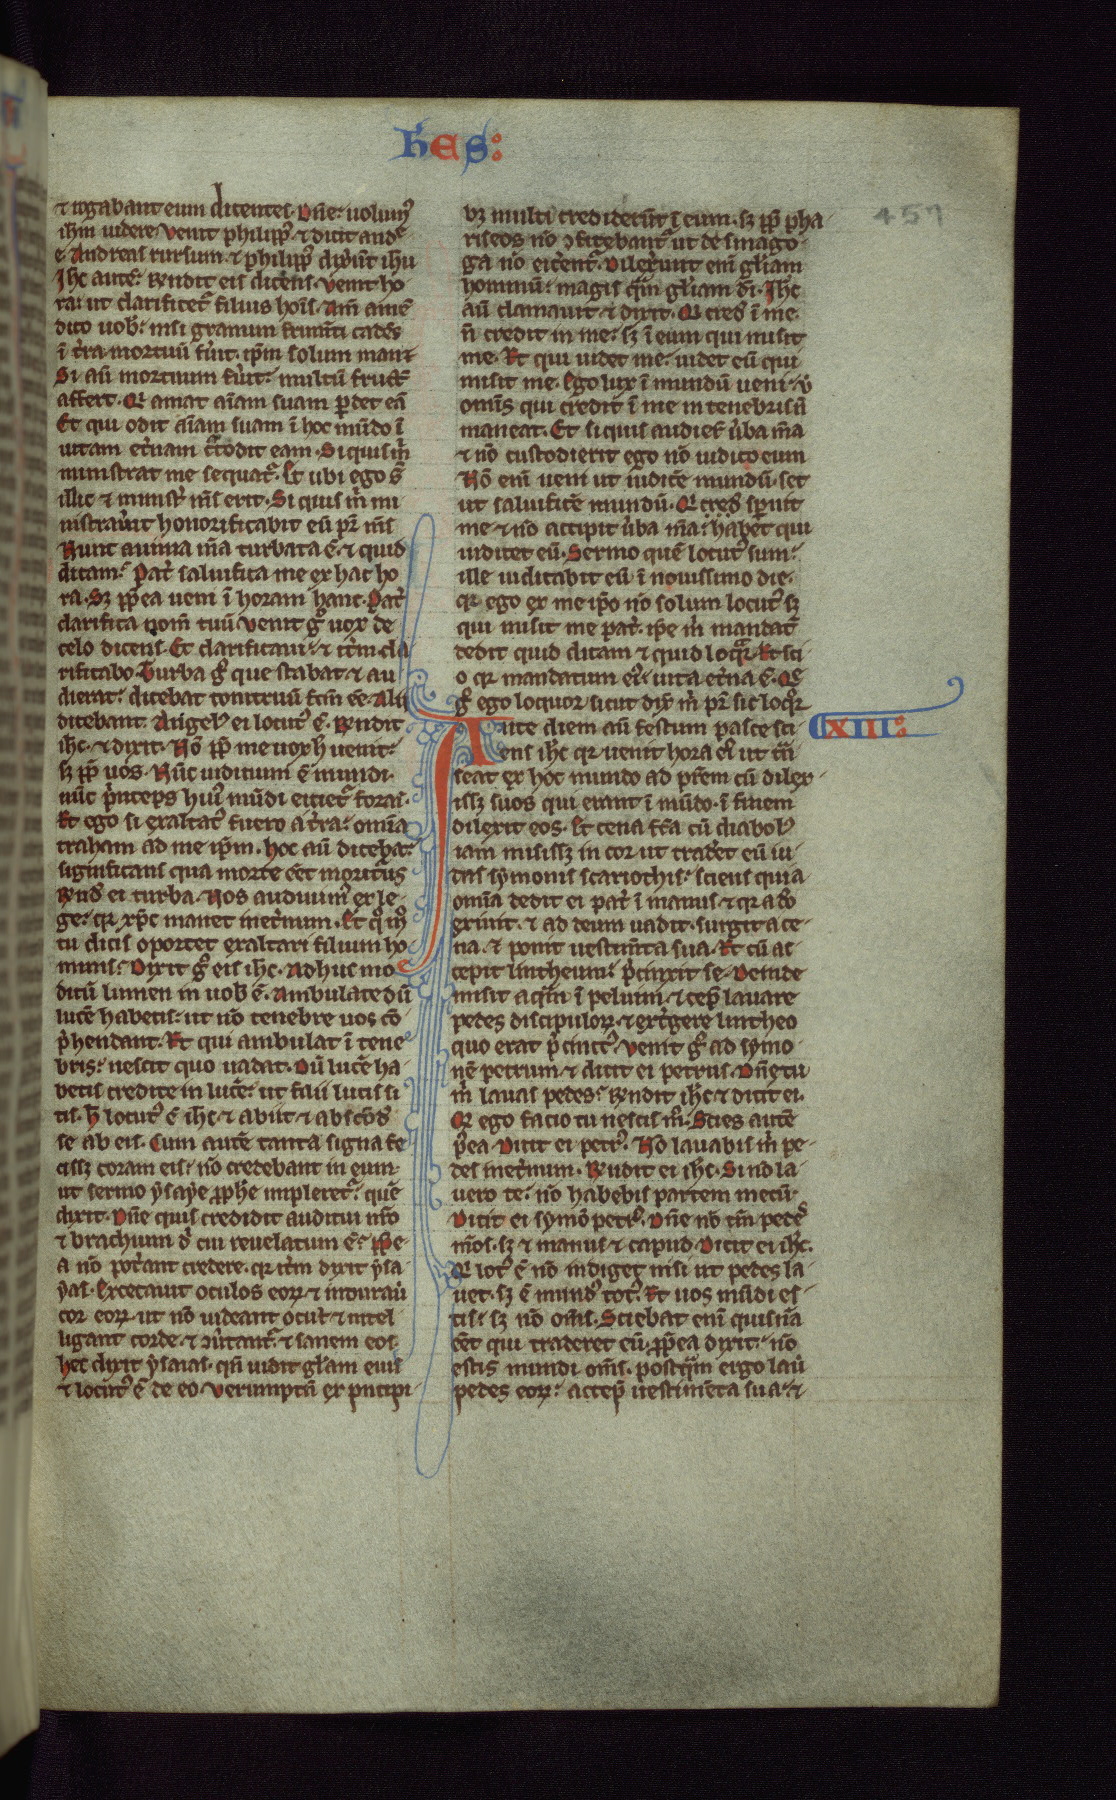 hES:
457
⁊ rogabant eum dicentes. Dn̄e uolum᷒
ih̄m uidere. Venit philipp᷒ ⁊ dicit and
e. Andreas rursum ⁊ philipp᷒ dixēt ihu
Ihc autē r̄ndit eis dicēs. Venit ho
ra: ut clarificet᷑ filius hoīs. Am̄ amē
dico uob̄: nisi granum frum̄ti cadēs
ī t̄ra mortuū fūit. ip̄m solum manꝫ
Si aū mortuum fūit: multū fruct᷒
affert. Q̄i amat aīam suam ꝑdet eā
Et qui odit aīam suam ī hoc mūdo ī
uitam et̄nam c᷒todit eam. Si quis m̄
ministrat me sequat᷑. Et ubi ego sū
illic ⁊ minist̄ m̄s erit. Si quis m̄ mi
nistrau̇it honorificabit eū pr̄ m̄s
Nunc anima m̄a turbata ē. ⁊ quid
dicam: Pat̄ saluifica me ex hac ho
ra. Sꝫ ꝓpt̄ea ueni ī horam hanc. Pat̄
clarifica nom̄ tuū. Venit g̊ uox de
celo dicens. Et clarificaui: ⁊ it̄m cla
rificabo. Turba g̊ que stabat ⁊ au
dierat: dicebat tonitruū fc̄m eē. Alii
dicebant. Angel᷒ ei locut᷒ ē. R̄ndit
ihc. ⁊ dixit. Nō ꝓp̄ me uox h̄ uenit:
sꝫ ꝓp̄ uos. Nūc iudicium ē mundi.
nūc p̄nceps hui᷒ mūdi eiciet᷑ foras.
Et ego si exaltat᷒ fuero a t̄ra: omīa
traham ad me ip̄m. hoc aū dicebat:
significans qua morte eēt moritur᷒
R̄nd̄ ei turba. Nos audiuim᷒ ex le
ge: qr xp̄c manet inet̄num. Et q̊m᷒
tu dicis oportet exaltari filium ho
minis: Dixit g̊ eis ihc. Adhuc mo
dicū lumen in uob̄ ē. Ambulate dū
lucē habetis: ut nō tenebre uos cō
p̄hendant. Et qui ambulat ī tene
bris: nescit quo uadat. Dū lucē ha
betis credite in lucē: ut filii lucis si
tis. h̄ locut᷒ ē ihc ⁊ abiit ⁊ abscōd
se ab eis. Cum autē tanta signa fe
cissꝫ coram eis: nō credebant in eum
ut sermo ysaye ꝓph̄e impleret᷑: quē
dixit. Dn̄e quis credidit auditui nr̄o
⁊ brachium dn̄i cui reuelatum ē: Propt̄e
a nō pot̄ant credere. qr it̄m dixit ysa
yas. Excecauit oculos eoꝝ ⁊ indurau̇
cor eoꝝ ut nō uideant ocul̄ ⁊ intel
ligant corde. ⁊ ↄu̇tant᷑ ⁊ sanem eos
hec dixit ysaias. qn̄ uidit gl̄am eius
⁊ locut᷒ ē de eo. Verumptn̄ ex pncipi
bꝫ multi crediderūt ī eum. sꝫ ꝓp̄ pha
riseos nō ↄfitebant᷑ ut de sinago
ga nō eic̄ent᷑. Dilex̄unt enī gl̄iam
hominū: magis q̄m gl̄iam dī. Ihc
aū clamauit ⁊ dixit. Qi cred̄ ī me
n̄ credit in me: sꝫ ī eum qui misit
me. Et qui uidet me: uidet eū qui
misit me. Ego lux ī mundū ueni: ut
omīs qui credit ī me in tenebris n̄
maneat. Et si quis audiet u̇ba m̄a
⁊ nō custodierit ego nō iudico eum
Nō enī ueni ut iudicē mundū: set
ut saluificē mundū. Qi cred̄ spnit
me ⁊ nō accipit u̇ba m̄a: habet qui
iudicet eū. Sermo quē locut᷒ sum:
ille iudicabit eū ī nouissimo die.
qr ego ex me ip̄o nō solum locut᷒ sꝫ
qui misit me pat̄. ip̄e m̄ mandat᷒
dedit quid dicam ⁊ quid loq̄r. Et sci
o qr mandatum ei᷒: uita et̄na ē. Q̄
g̊ ego loquor sicut dix̄ m̄ pr̄ sic loq̊r
Ante diem aū festum pasce sci
XIII:
ens ihc qr uenit hora ei᷒ ut t̄n
seat ex hoc mundo ad pr̄em cū dilex
issꝫ suos qui erant ī mūdo. ī finem
dilexit eos. Et cena fc̄a cū diabol᷒
iam misissꝫ in cor ut trad̄et eū iu
das symonis scariothis: sciens quia
omīa dedit ei pat̄ ī manus ⁊ qr a do
exiuit. ⁊ ad deum uadit. surgit a ce
na. ⁊ ponit uestim̄ta sua. Et cū ac
cepit lintheum: p̄cinxit se. Deinde
misit aq̄m ī peluim ⁊ cep̄ lauare
pedes discipuloꝝ. ⁊ ext̄gere lintheo
quo erat p̄cinct᷒. Venit g̊ ad symo
nē petrum ⁊ dicit ei petrus. Dn̄e tu
m̄ lauas pedes: R̄ndit ihc ⁊ dicit ei.
Q̄ ego facio tu nescis m̄. Scies autē
p̄ea. Dicit ei petr᷒. Nō lauabis m̄ pe
des inet̄num. R̄ndit ei ihc. Si nō la
uero te: nō habebis partem mecū.
Dicit ei symō petr᷒. Dn̄e nō tm̄ pedes
m̄os. sꝫ ⁊ manus ⁊ capud. Dicit ei ihc.
Qi lot᷒ ē nō indiget nisi ut pedes la
uet. sꝫ ē mund᷒ tot᷒. Et uos mūdi es
tis: sꝫ nō oms̄. Sciebat enī quisnā
eēt qui traderet eū. ꝓpt̄ea dixit: nō
estis mundi oms̄. postq̄m ergo lau̇
pedes eoꝝ: accep̄ uestimēta sua: ⁊